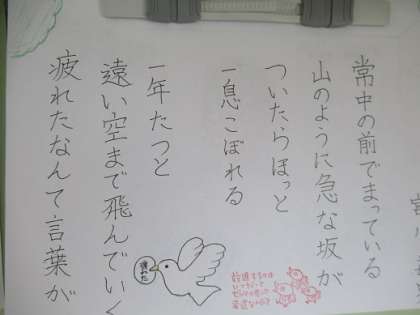 常中の前でまっている
山のように急な坂が
ついたらほっと
一息こぼれる
一年たつと
遠い空まで飛んでいく
疲れたなんて言葉が
疲れた